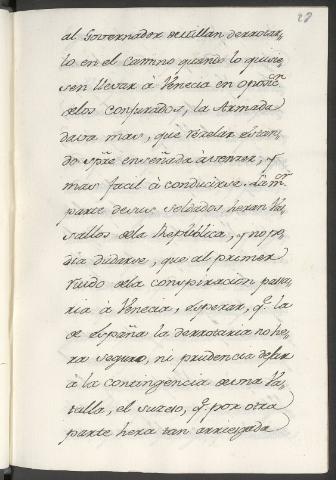 28
al Governador de Millan derrotar-
lo en el camino quando lo quisie-
sen llevar à Venecia en oposic.on
de los conjurados, la Armada
dava mas, que rezelar estan-
do spre enseñada à vencer, y
mas facil à conducirse. La m.or
parte de sus soldados heran Va-
sallos de la Republica, y no po-
dia dudarse, que al primer
ruido de la conspiracion pasa-
ria à Venecia, esperar, q.e la
de España la derrotaria no he-
ra seguro, ni prudencia dejar
à la contingencia de una Ba-
talla, el suceso, q.e por otra
parte hera tan arriesgada